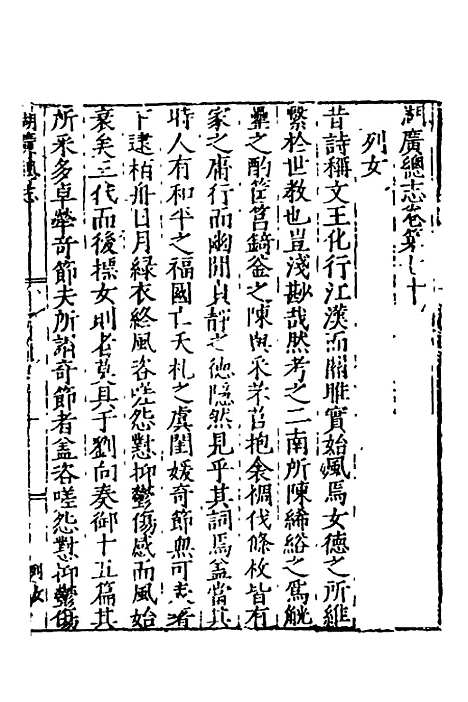 湖廣總志卷第七十
列女
昔詩稱文王化行江漢而關雎實始風焉女德之所維
繫於世教也豈淺尠哉然考之二南所陳絺綌之爲觥
罍之酌筐筥錡釜之陳與采芣苢抱衾裯伐條枚皆有
家之庸行而幽閒貞靜之德隱然見乎其詞焉盖當其
時人有和平之福國亡夭札之虞閨媛奇節無可表者
下逮栢舟日月緑衣終風咨嗟怨懟抑鬱傷感而風始
衰矣三代而後摽女則者莫具于劉向奏御十五篇其
所釆多卓犖奇節夫所謂奇節者盖咨嗟怨懟抑鬱傷
湖廣總志
列女